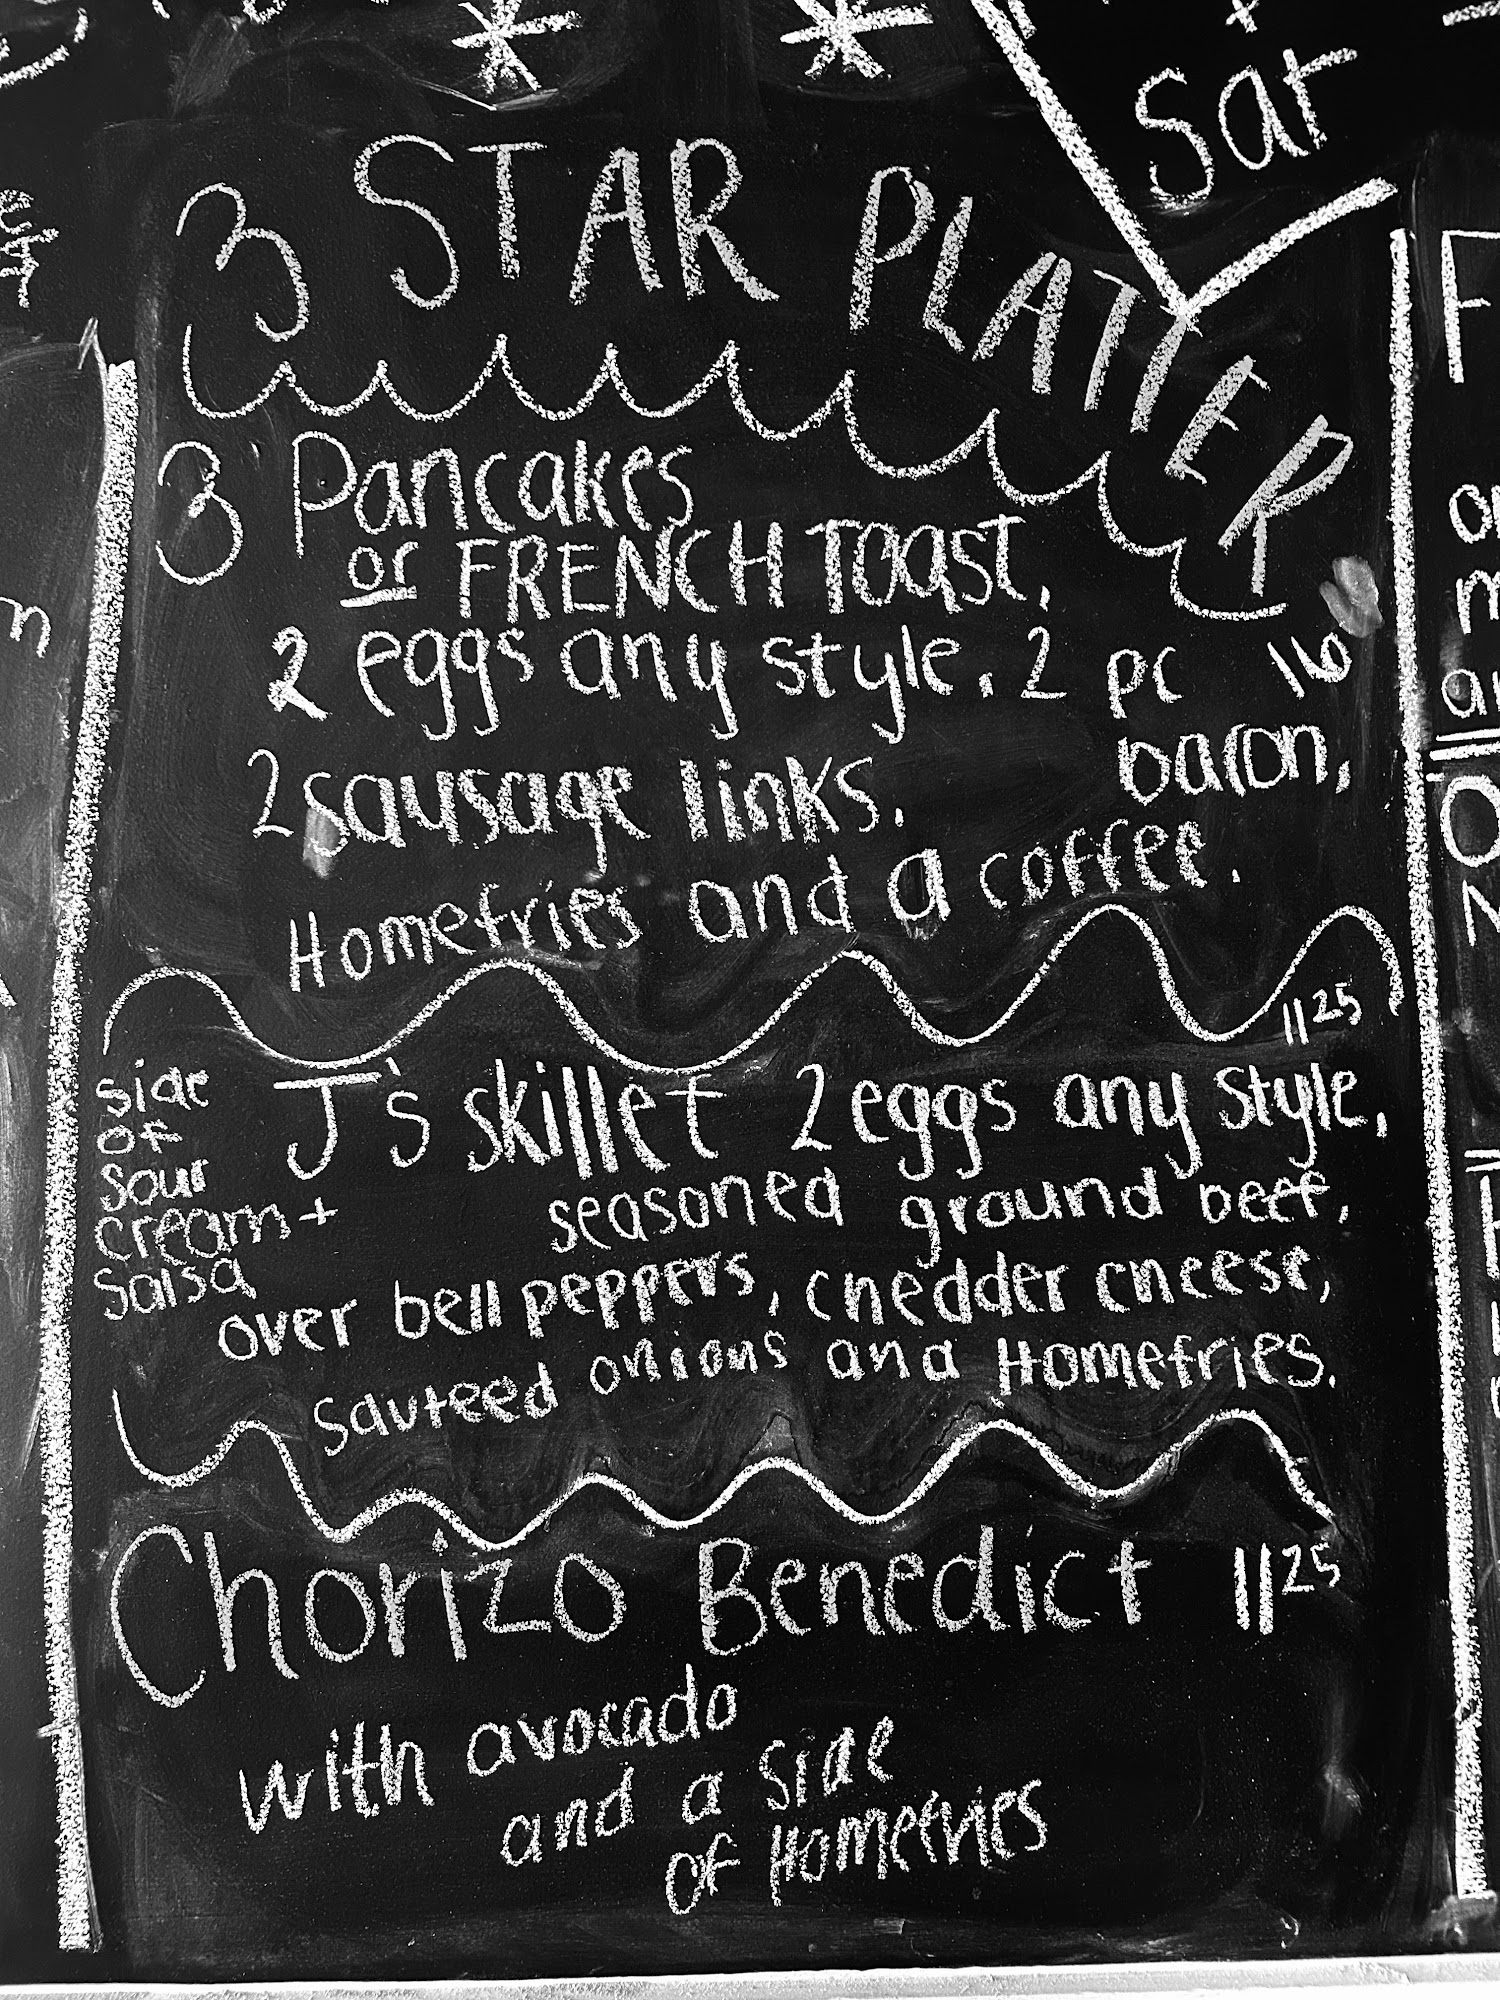 +
Sat
3 STAR PLATTER
3 Pancakes
or FRENCH TOAST,
2 eggs any style, 2 pc
16
bacon,
2 sausage links,
Homefries and a coffee.
1125
J's skillet 2 eggs any style,
seasoned ground beef,
over bell peppers, chedder cheese,
sauteed onions and Homefries.
side
of
sour
cream +
salsa
Chorizo Benedict 1125
with avocado
and a side
of Homefries